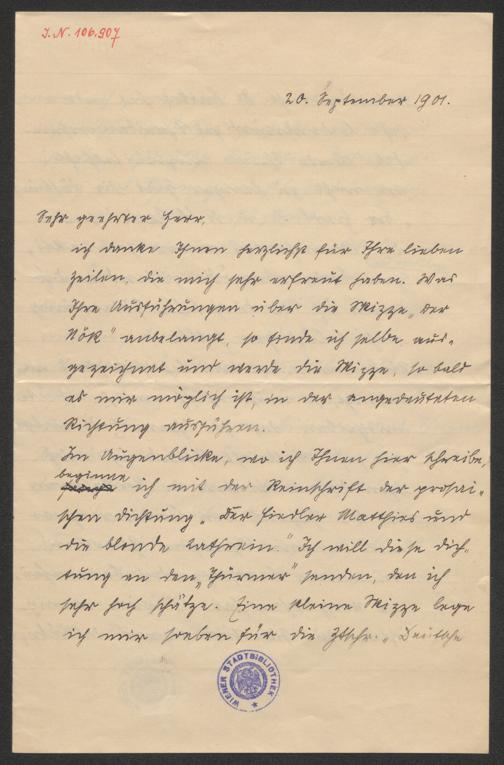 I.N. 106.907
20. September 1901.
Sehr geehrter Herr,
ich danke Ihnen herzlichst für Ihre lieben
Zeilen, die mich sehr erfreut haben. Was
Ihre Ausführungen über die Skizze „der
Nök" anbelangt, so finde ich selbe aus-
gezeichnet und werde die Skizze, so bald
es mir möglich ist, in der angedeuteten
Richtung ausführen.
Im Augenblicke, wo ich Ihnen hier schreibe,
beginne
ich mit der Reinschrift der prosai-
schen Dichtung „Der Fiedler Matthies und
die blonde Kathrein." Ich will diese Dich-
tung an den „Thürmer" senden, den ich
sehr hoch schätze. Eine kleine Skizze lege
ich mir soeben für die Ztschr. „Deutsche
WIENER STADTBIBLIOTHEK